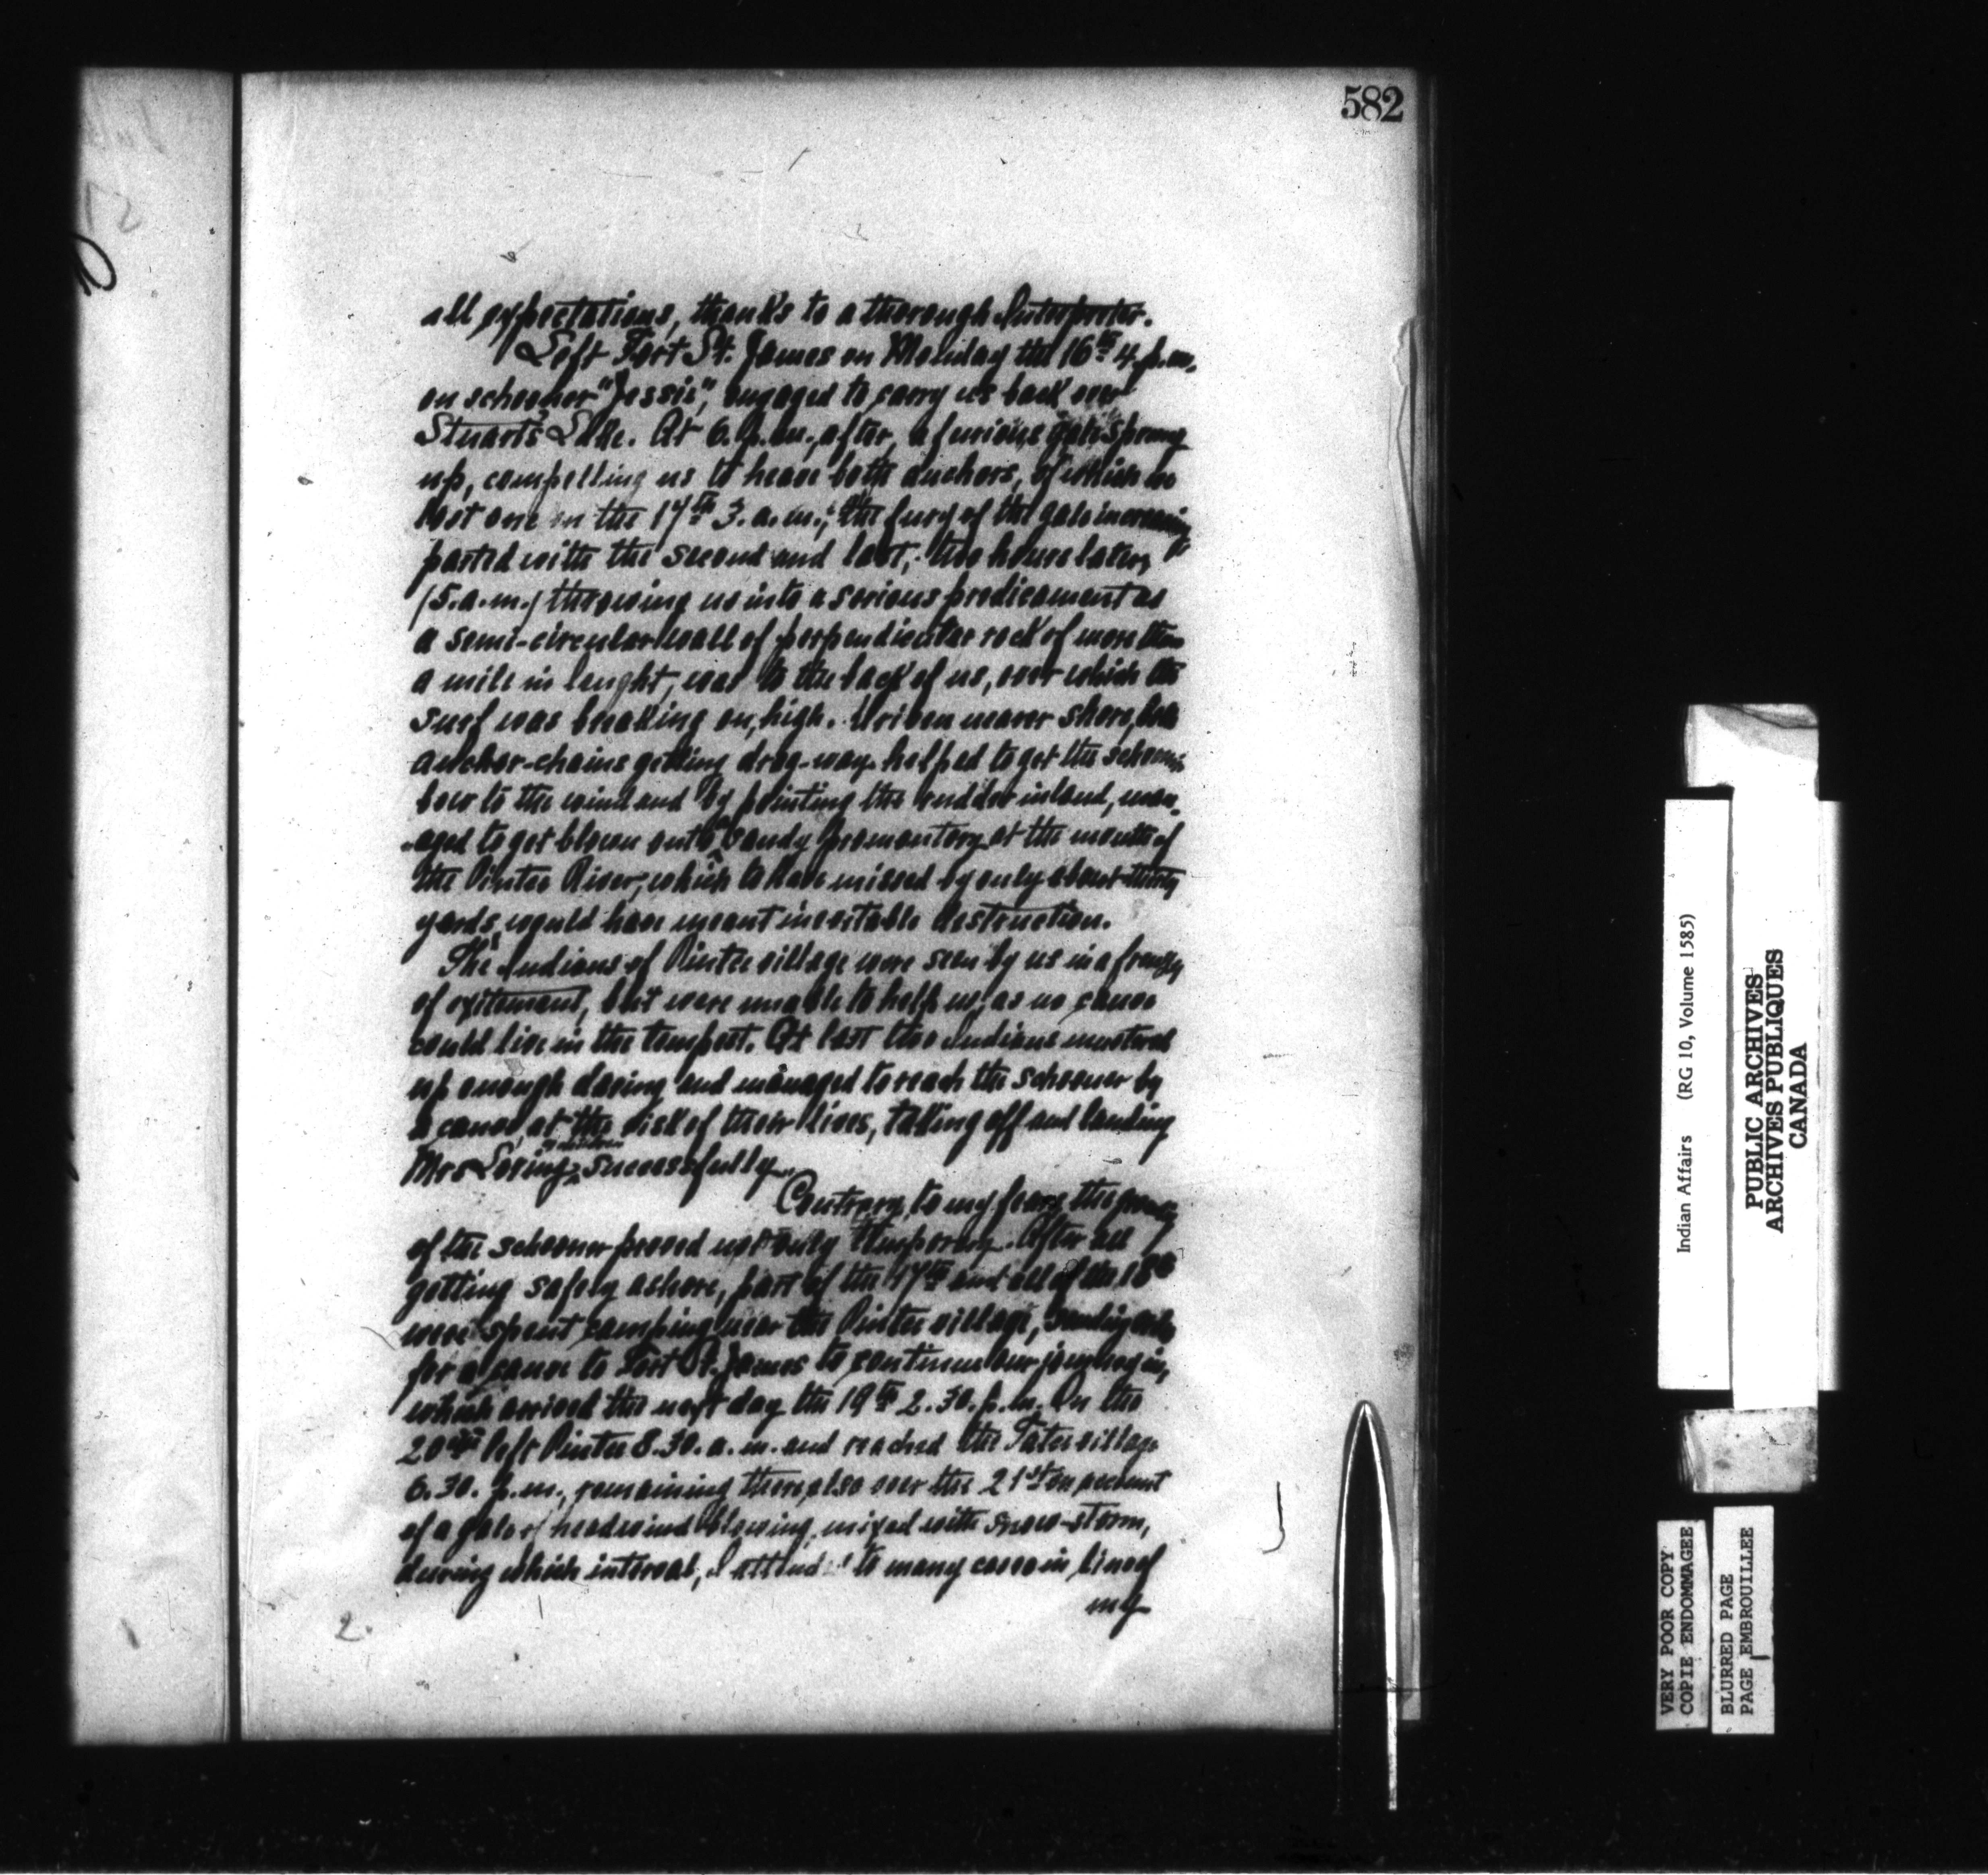 582
all expectations, thanks to a thorough Interpreter.
Left Fort St. James on Monday the 16th 4. p.m.
on schooner "Jessie", engaged to carry us back over
Stuart's Lake. At 6. p.m., after, a furious gale sprung
up, compelling us to heave both anchors, of which we
lost one on the 17th 3. a.m.; the fury of the gale increasing
parted with the second and last, two hours later,
(5. a.m.) throwing us into a serious predicament as
a semi-circular wall of perpendicular rock of more than
a mile in lenght, was to the back of us, over which the
surf was breaking on high. Driven nearer shore, both
anchor-chains getting drag-way helped to get the schooner
bow to the wind and by pointing the rudder inland, man-
-aged to get blown onto a sandy promontory at the mouth of
the Pintce River, which to have missed by only about thirty
yards, would have meant inevitable destruction.
The Indians of Pintce village were seen by us in a frenzy
of exitement, but were unable to help us, as no canoe
could live in the tempest. At last two Indians mustered
up enough daring and managed to reach the schooner by
a canoe, at the risk of their lives, taking off and landing
Mrs Loring & children successfully.
Contrary to my fears, the
of the schooner proved not only temporary. After all
getting safely ashore, part of the 17th and all of the 18th
were spent camping near the Pintce village, sending
for a canoe to Fort St. James to continue our journey in,
which arrived the next day the 19th 2.30. p.m. On the
20th left Pintce 8.30. a.m. and reached the Tatce village
6.30. p.m., remaining there also over the 21st on account
of a gale of headwind blowing, mixed with snow-storm,
during which interval, I attended to many cases in line of
my
2.
Indian Affairs (RG 10, Volume 1585)
PUBLIC ARCHIVES
ARCHIVES PUBLIQUES
CANADA
VERY POOR COPY
COPIE ENDOMMAGEE
BLURRED PAGE
PAGE EMBROUILLEE